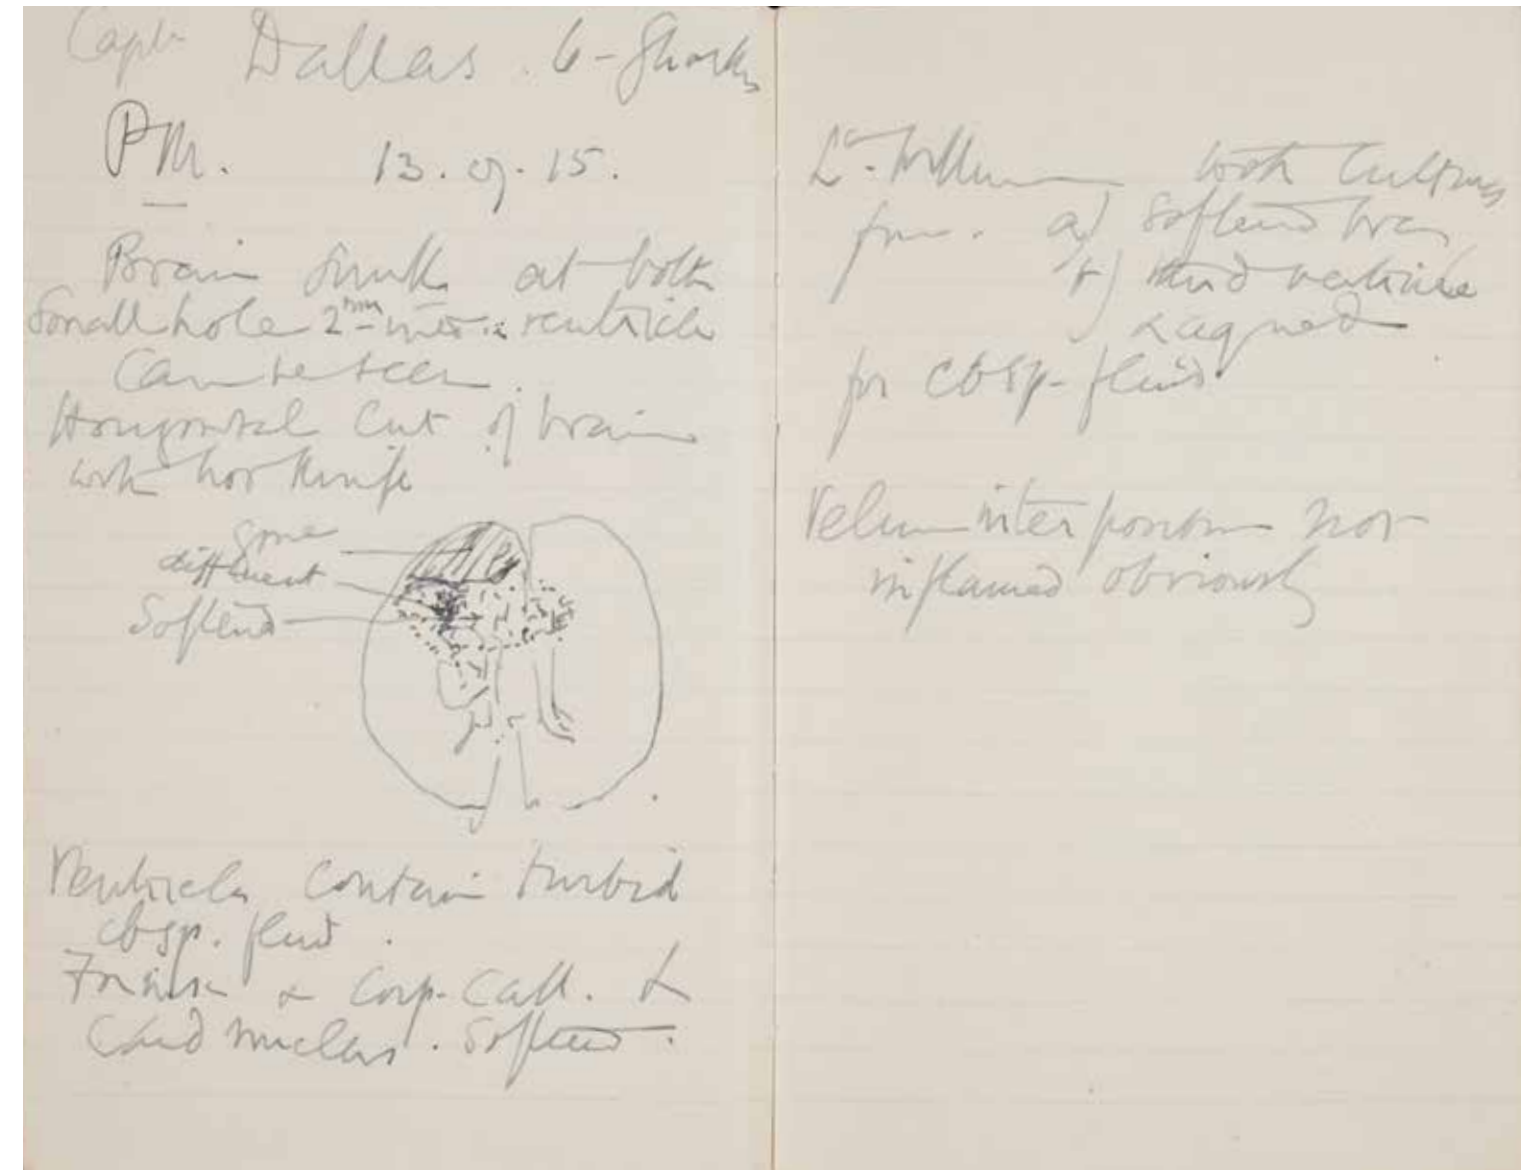 Capt Dallas. 6-
PM. 13.9.15.
Brain sunk at both
Small hole 2mm into ventricle
Can be seen.
Horizontal Cut of brain
with hot knife
gone
diffluent
Softend
Ventricles contain turbid
cbsp. fluid.
Fornix & Corp. Call. &
Caud nucleus. Softend.
Lt. with Cultures
from a) Softend brain
b) third ventricle
for cbsp-fluid
Velum interpositum not
inflamed obviously